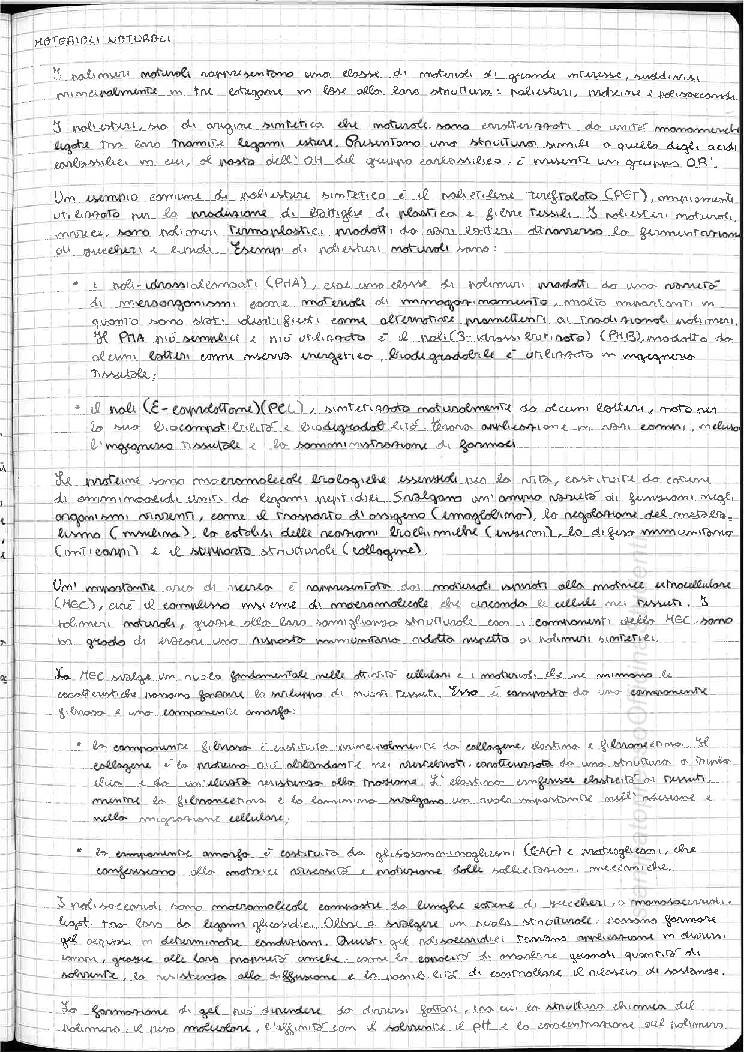 MATERIALI NATURALI
I polimeri naturali rappresentano una classe di materiali di grande interesse, suddivisi
principalmente in tre categorie in base alla loro struttura: poliesteri, proteine e polisaccaridi.
I poliesteri, sia di origine sintetica che naturale, sono caratterizzati da unità monomeriche
legate tra loro tramite legami estere. Presentano una struttura simile a quella degli acidi
carbossilici in cui, al posto dell'OH del gruppo carbossilico, è presente un gruppo OR'.
Un esempio comune di poliestere sintetico è il polietilene tereftalato (PET), ampiamente
utilizzato per la produzione di bottiglie di plastica e fibre tessili. I poliesteri naturali,
invece, sono polimeri termoplastici prodotti da vari batteri attraverso la fermentazione
di zuccheri e lipidi. Esempi di poliesteri naturali sono:
• i poli-idrossialcanoati (PHA), cioè una classe di polimeri prodotti da una varietà
di microorganismi come materiale di immagazzinamento, molto importanti in
quanto sono stati identificati come alternative promettenti ai tradizionali polimeri.
Il PHA più semplice e più utilizzato è il poli(3-idrossibutirrato) (PHB), prodotto da
alcuni batteri come riserva energetica, biodegradabile e utilizzato in ingegneria
tissutale;
• il poli (ε-caprolattone) (PCL), sintetizzato naturalmente da alcuni batteri, noto per
la sua biocompatibilità e biodegradabilità. Trova applicazione in vari campi, inclusa
l'ingegneria tissutale e la somministrazione di farmaci.
Le proteine sono macromolecole biologiche essenziali per la vita, costituite da catene
di amminoacidi uniti da legami peptidici. Svolgono un'ampia varietà di funzioni negli
organismi viventi, come il trasporto di ossigeno (emoglobina), la regolazione del metabo-
lismo (insulina), la catalisi delle reazioni biochimiche (enzimi), la difesa immunitaria
(anticorpi) e il supporto strutturale (collagene).
Un'importante area di ricerca è rappresentata dai materiali ispirati alla matrice extracellulare
(MEC), cioè il complesso insieme di macromolecole che circonda le cellule nei tessuti. I
polimeri naturali, grazie alla loro somiglianza strutturale con i componenti della MEC, sono
in grado di evocare una risposta immunitaria ridotta rispetto ai polimeri sintetici.
La MEC svolge un ruolo fondamentale nelle attività cellulari e i materiali che ne mimano le
caratteristiche possono favorire lo sviluppo di nuovi tessuti. Essa è composta da una componente
fibrosa e una componente amorfa:
• la componente fibrosa è costituita principalmente da collagene, elastina e fibronectina. Il
collagene è la proteina più abbondante nei vertebrati, caratterizzata da una struttura a tripla
elica e da un'elevata resistenza alla trazione. L'elastina conferisce elasticità ai tessuti,
mentre la fibronectina e la laminina svolgono un ruolo importante nell'adesione e
nella migrazione cellulare;
• la componente amorfa è costituita da glicosamminoglicani (GAG) e proteoglicani, che
conferiscono alla matrice viscosità e protezione dalle sollecitazioni meccaniche.
I polisaccaridi sono macromolecole composte da lunghe catene di zuccheri, o monosaccaridi,
legati tra loro da legami glicosidici. Oltre a svolgere un ruolo strutturale, possono formare
gel acquosi in determinate condizioni. Questi gel polisaccaridici trovano applicazione in diversi
campi, grazie alle loro proprietà uniche, come la capacità di assorbire grandi quantità di
solvente, la resistenza alla diffusione e la possibilità di controllare il rilascio di sostanze.
La formazione di gel può dipendere da diversi fattori, tra cui la struttura chimica del
polimero, il peso molecolare, l'affinità con il solvente, il pH e la concentrazione del polimero.